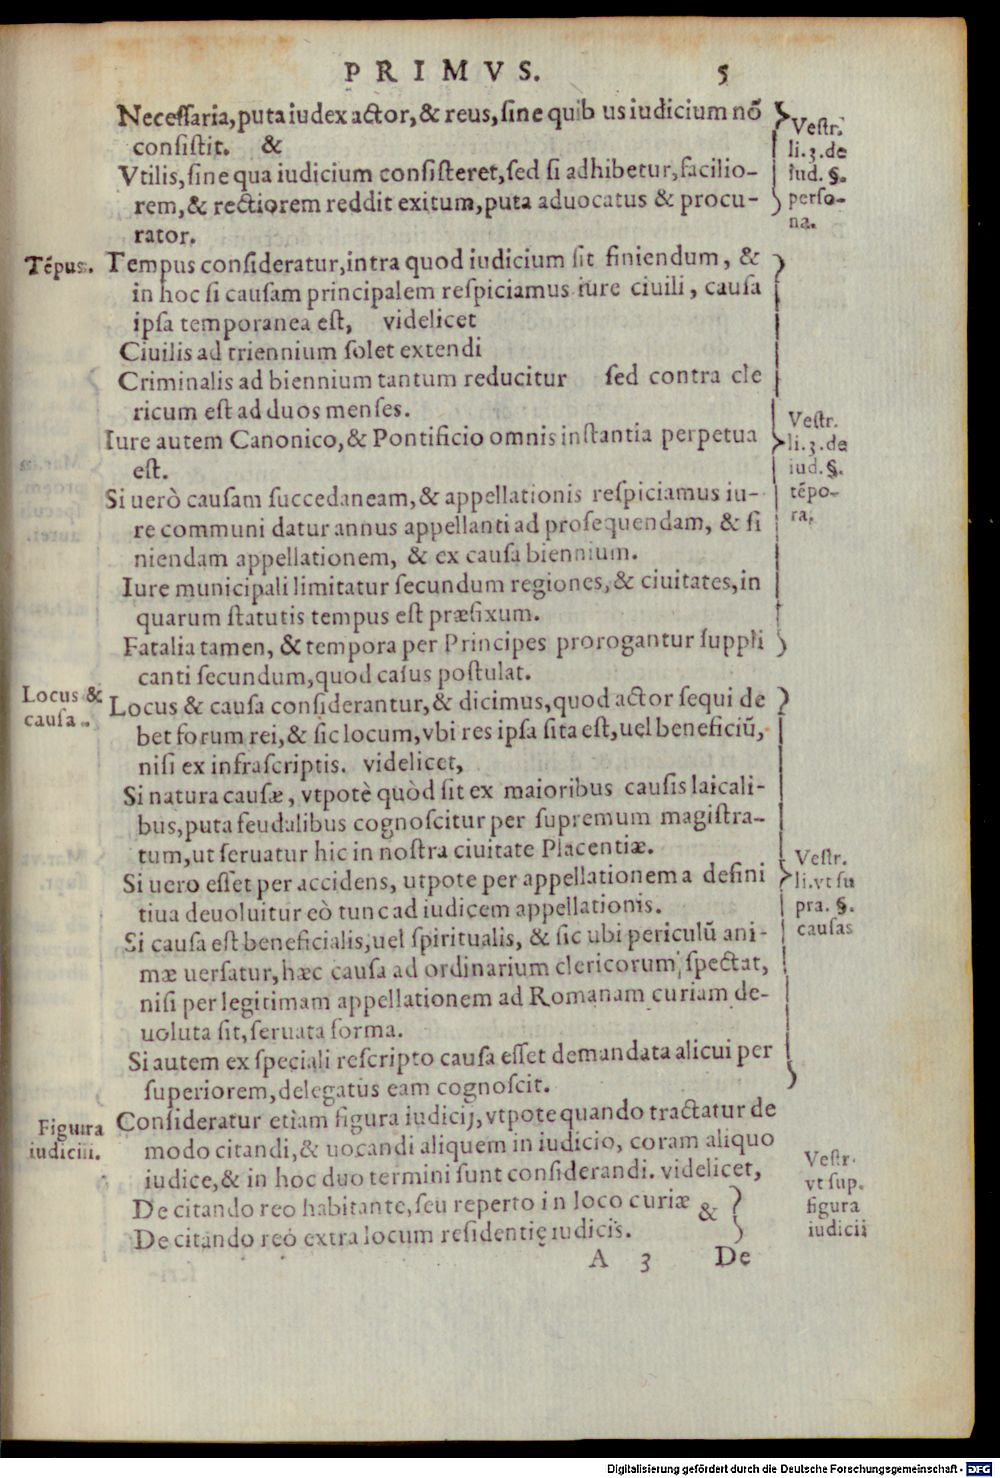 PRIMVS. 5
Neceſſaria, puta iudex actor, & reus, ſine quib us iudicium nõ
conſiſtit. &
Vtilis, ſine qua iudicium conſiſteret, ſed ſi adhibetur, facilio-
rem, & rectiorem reddit exitum, puta aduocatus & procu-
rator.
Veſtr.
li.3.de
iud. §.
perſo-
na.
Tẽpus.
Tempus conſideratur, intra quod iudicium ſit finiendum, &
in hoc ſi cauſam principalem reſpiciamus iure ciuili, cauſa
ipſa temporanea eſt, videlicet
Ciuilis ad triennium ſolet extendi
Criminalis ad biennium tantum reducitur ſed contra cle
ricum eſt ad duos menſes.
Iure autem Canonico, & Pontificio omnis inſtantia perpetua
eſt.
Si uerò cauſam ſuccedaneam, & appellationis reſpiciamus iu-
re communi datur annus appellanti ad proſequendam, & fi
niendam appellationem, & ex cauſa biennium.
Iure municipali limitatur ſecundum regiones, & ciuitates, in
quarum ſtatutis tempus eſt præfixum.
Fatalia tamen, & tempora per Principes prorogantur ſuppli
canti ſecundum, quod caſus poſtulat.
Veſtr.
li.3.de
iud. §.
tẽpo-
ra.
Locus &
cauſa.
Locus & cauſa conſiderantur, & dicimus, quod actor ſequi de
bet forum rei, & ſic locum, vbi res ipſa ſita eſt, uel beneficiũ,
niſi ex infraſcriptis. videlicet,
Si natura cauſæ, vtpotè quòd ſit ex maioribus cauſis laicali-
bus, puta feudalibus cognoſcitur per ſupremum magiſtra-
tum, ut ſeruatur hic in noſtra ciuitate Placentiæ.
Si uero eſſet per accidens, utpote per appellationem a defini
tiua deuoluitur eò tunc ad iudicem appellationis.
Si cauſa eſt beneficialis, uel ſpiritualis, & ſic ubi periculũ ani-
mæ uerſatur, hæc cauſa ad ordinarium clericorum ſpectat,
niſi per legitimam appellationem ad Romanam curiam de-
uoluta ſit, ſeruata forma.
Si autem ex ſpeciali reſcripto cauſa eſſet demandata alicui per
ſuperiorem, delegatus eam cognoſcit.
Veſtr.
li.vt ſu
pra. §.
cauſas
Figura
iudicii.
Conſideratur etiam figura iudicij, vtpote quando tractatur de
modo citandi, & uocandi aliquem in iudicio, coram aliquo
iudice, & in hoc duo termini ſunt conſiderandi. videlicet,
De citando reo habitante, ſeu reperto in loco curiæ &
De citando reo extra locum reſidentię iudicis.
Veſtr.
vt ſup.
figura
iudicii
A 3 De
Digitalisierung gefördert durch die Deutsche Forschungsgemeinschaft - DFG